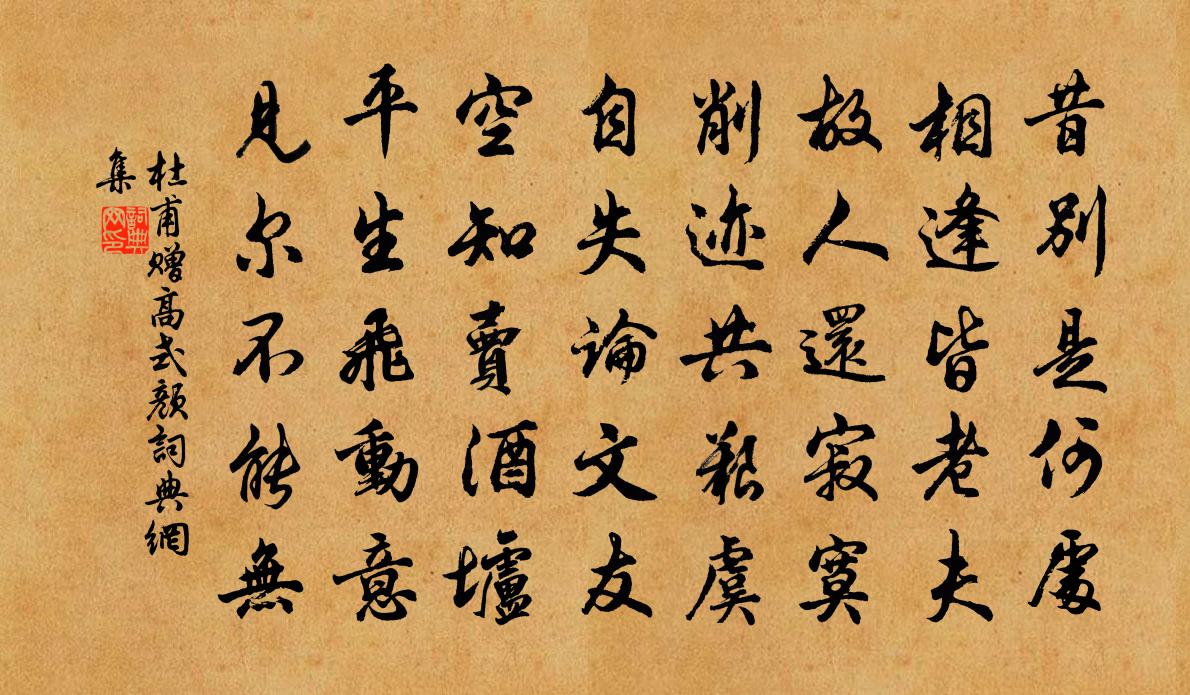 昔別是何處
相逢皆老夫
故人還寂寞
削迹共艱虞
自失論文友
空知賣酒壚
平生飛動意
見尔不能無
杜甫贈高式顏詞典網
集
詞典
网印